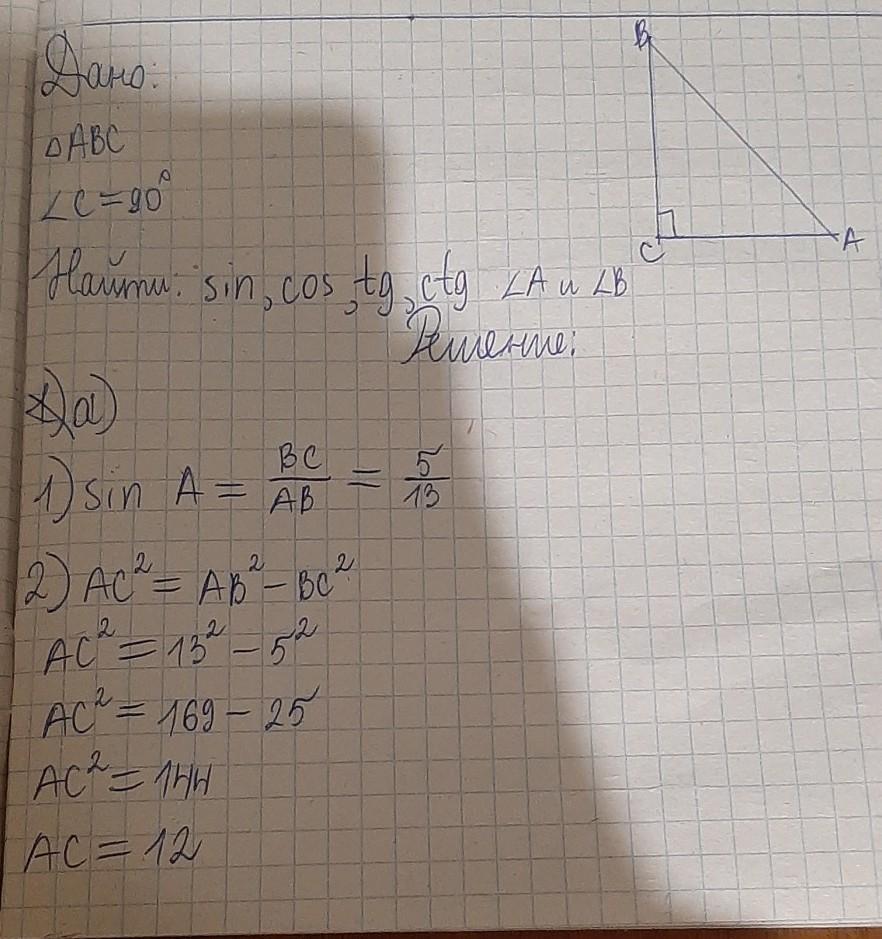 Дано:
B
△ABC
∠C=90°
C
A
Найти: sin, cos, tg, ctg ∠A и ∠B
Решение:
а)
1) sin A = BC/AB = 5/13
2) AC² = AB² - BC²
AC² = 13² - 5²
AC² = 169 - 25
AC² = 144
AC = 12